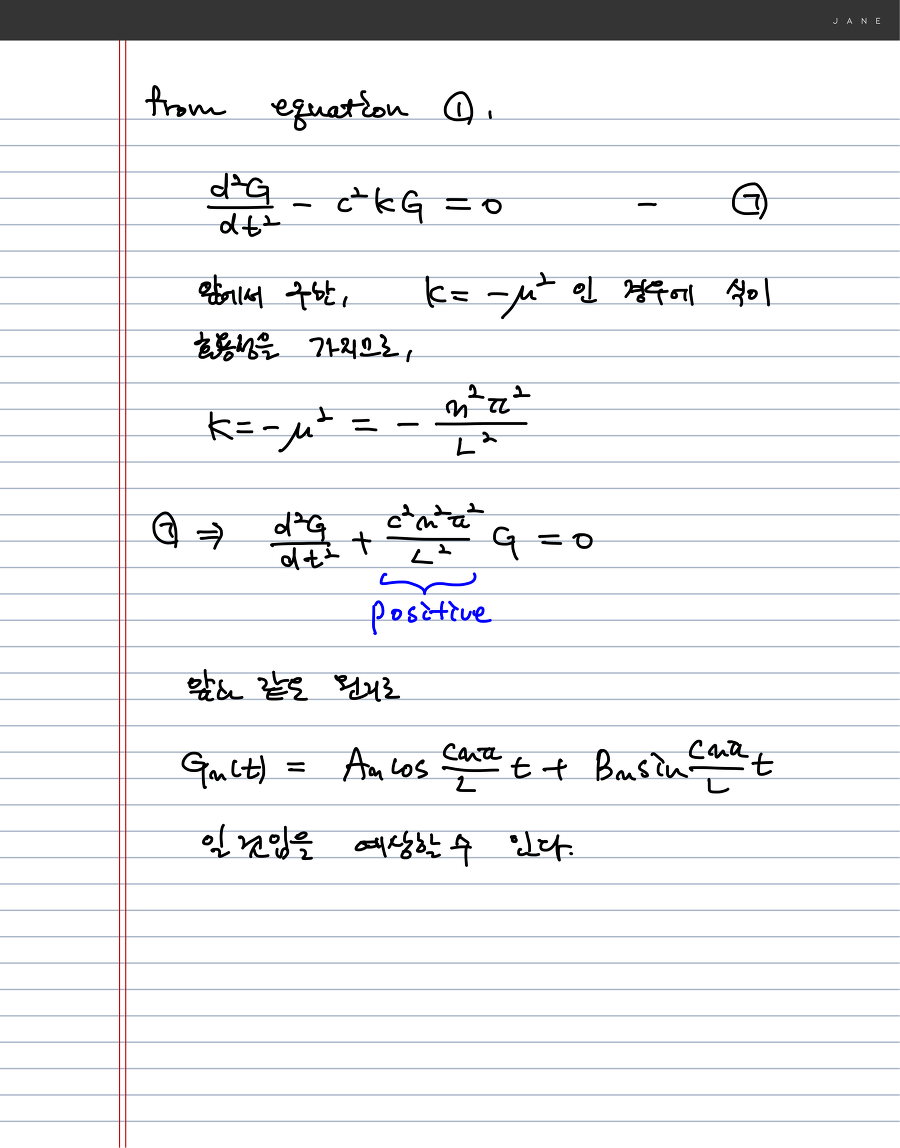 JANE
from equation ①,
d²G/dt² - c²kG = 0 - ㉠
앞에서 구한, k = -μ² 인 경우에 식이
효용성을 가지므로,
k = -μ² = - n²π²/L²
㉠ ⇒ d²G/dt² + c²n²π²/L² G = 0
positive
앞과 같은 원리로
Gn(t) = An cos cnπ/L t + Bn sin cnπ/L t
일 것임을 예상할 수 있다.